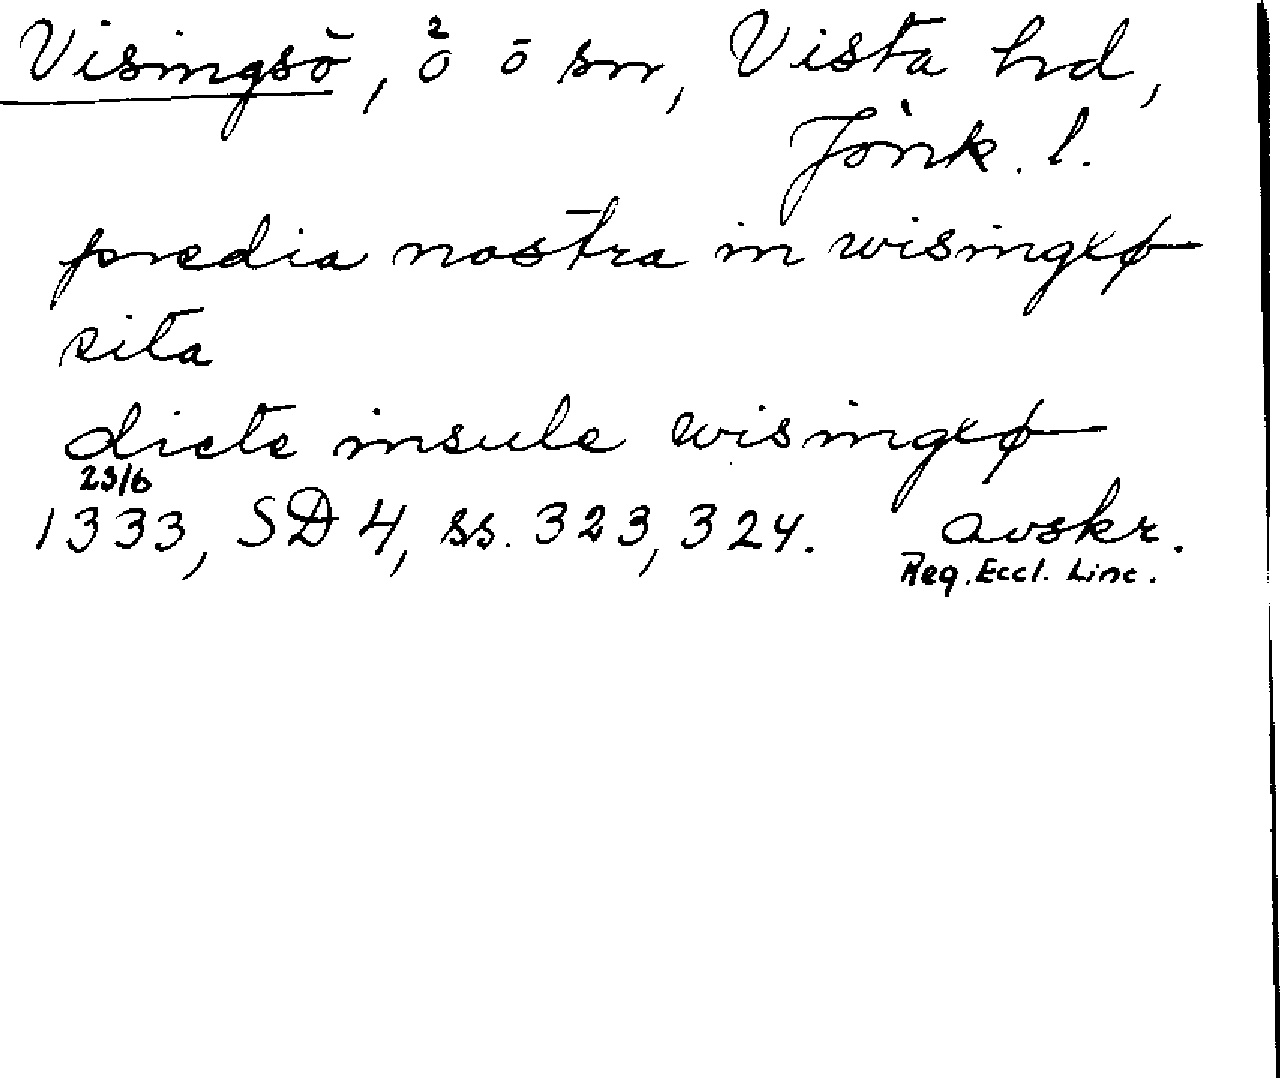 Visingsö, ö² o sn, Vista hd,
Jönk. l.
predia nostra in wisingxø
sita
dicte insule wisingxø
23/6
1333, SD 4, ss. 323, 324. avskr.
Reg. Eccl. Linc.